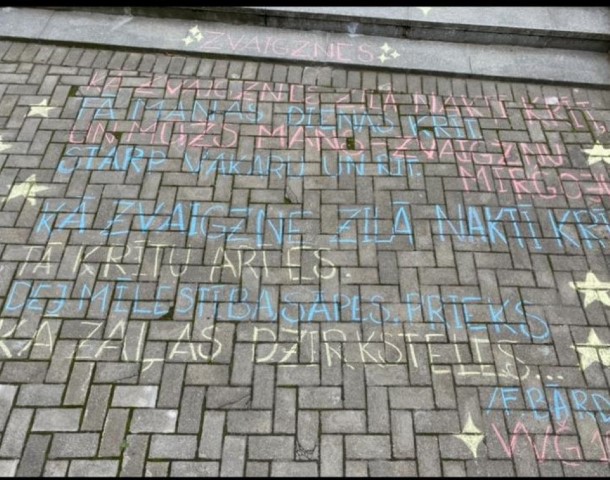 ZVAIGZNES
KĀ ZVAIGZNE ZILĀ NAKTĪ KRĪT,
TĀ MANAS DIENAS KRĪT
UN MŪŽS MANS - ZVAIGŽŅU
MIRGO
STARP VAKARU UN RĪT.
KĀ ZVAIGZNE ZILĀ NAKTĪ KRĪ
TĀ KRĪTU ARĪ ES.
DEJ MĪLESTĪBA, SĀPES, PRIEKS
KĀ ZAĻAS DZIRKSTELES...
/F. BĀRD